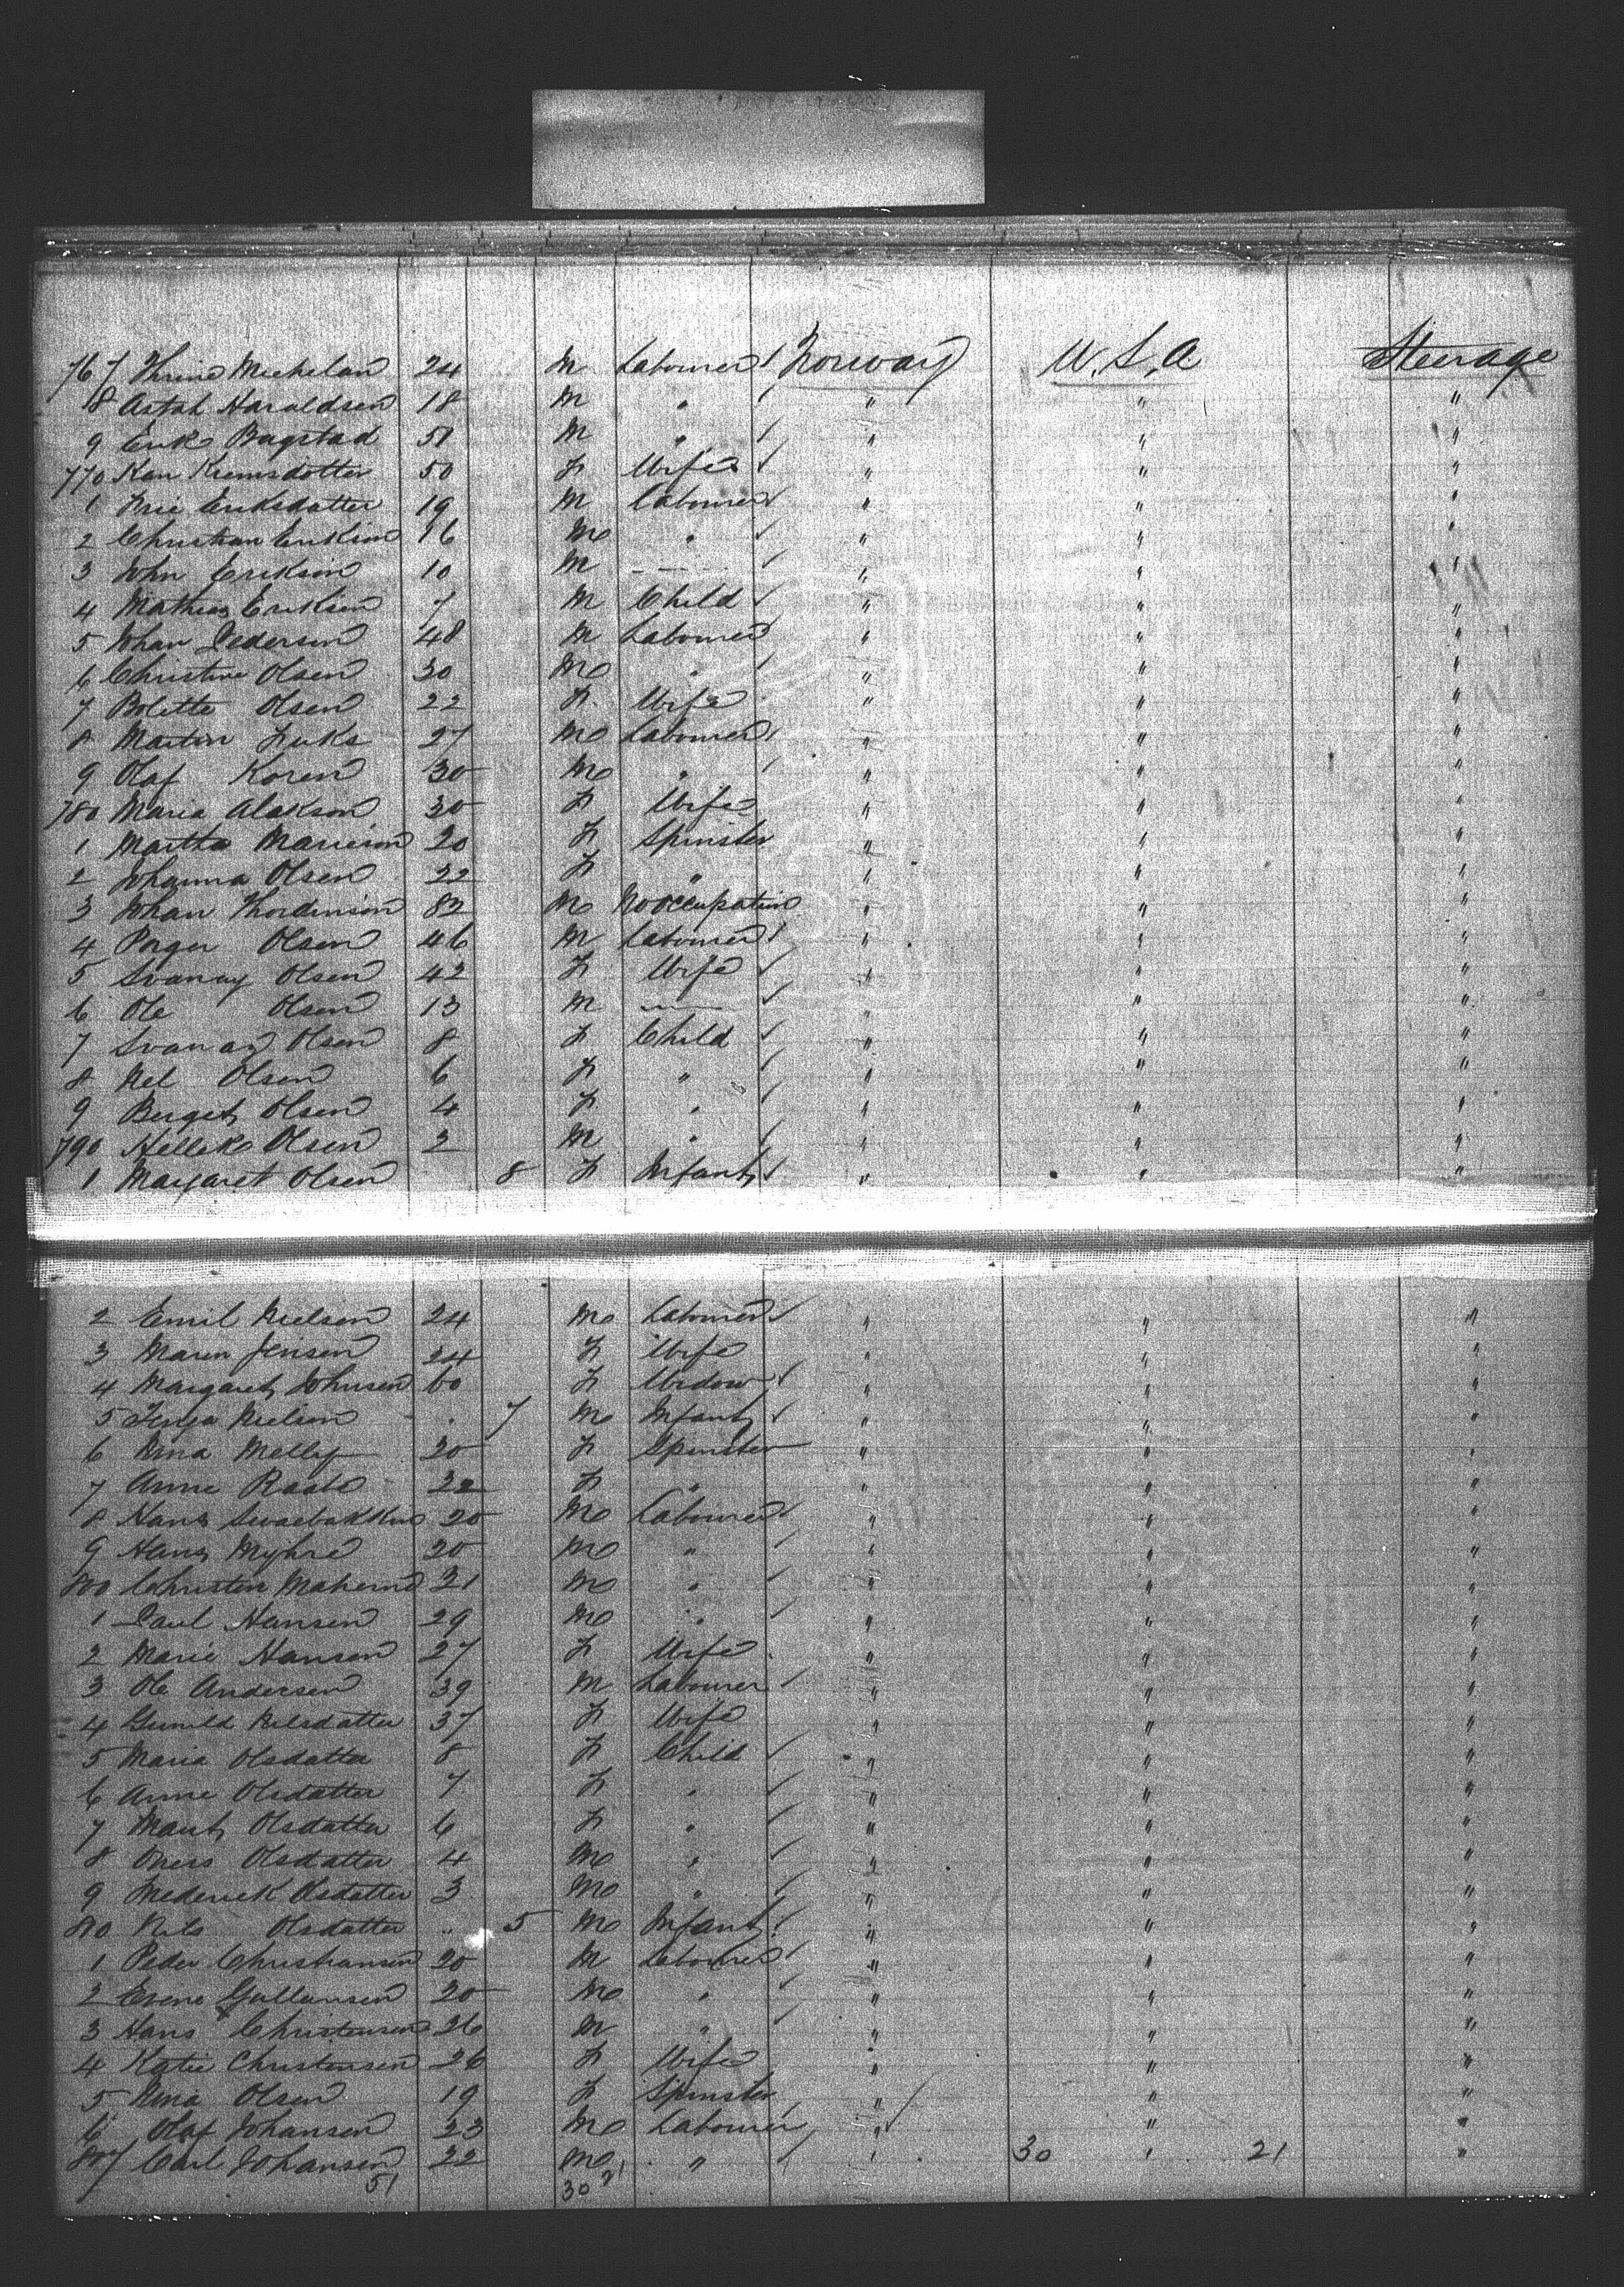 767 Thrine Mechelan 24 M Labourer Norway U.S.A Steerage
8 Astah Haraldsen 18 M " " " "
9 Erik Bagstad 51 M " " " "
770 Kari 50 F Wife " " "
1 Eriksdatter 19 M Labourer " " "
2 Christian Erikson 16 M " " " "
3 John Erikson 10 M — " " "
4 Mathias Eriksen 7 M Child " " "
5 Johan Pedersen 48 M Labourer " " "
6 Christine Olsen 30 M " " " "
7 Bolette Olsen 22 F Wife " " "
8 Martin Fuks 27 M Labourer " " "
9 Olaf Koren 30 M " " " "
780 Maria Alakson 30 F Wife " " "
1 Martha 20 F Spinster " " "
2 Johanna Olsen 22 F " " " "
3 Johan Thordinson 82 M No occupation " " "
4 Olsen 46 M Labourer " " "
5 Svanaug Olsen 42 F Wife " " "
6 Ole Olsen 13 M — " " "
7 Svanaug Olsen 8 F Child " " "
8 Nel Olsen 6 F " " " "
9 Berget Olsen 4 F " " " "
790 Hellek Olsen 2 M " " " "
1 Margaret Olsen 8 F Infant " " "
2 Emil Nielsen 24 M Labourer " " "
3 Maren Jensen 24 F Wife " " "
4 Margaret Johnsen 60 F Widow " " "
5 Nielsen 7 M Infant " " "
6 Nina Melby 20 F Spinster " " "
7 Anne Raabo 22 F " " " "
8 Hans 20 M Labourer " " "
9 Hans Myhre 20 M " " " "
800 Christen 21 M " " " "
1 Paul Hansen 29 M " " " "
2 Marie Hansen 27 F Wife " " "
3 Ole Andersen 39 M Labourer " " "
4 Gunild Nilsdatter 37 F Wife " " "
5 Maria Olsdatter 8 F Child " " "
6 Anne Olsdatter 7 F " " " "
7 Marit Olsdatter 6 F " " " "
8 Olsdatter 4 M " " " "
9 Frederick Olsdatter 3 M " " " "
810 Nils Olsdatter 5 M Infant " " "
1 Peder Christiansen 20 M Labourer " " "
2 Evene Gullansen 20 M " " " "
3 Hans Christensen 26 M " " " "
4 Katie Christensen 26 F Wife " " "
5 Nina Olsen 19 F Spinster " " "
6 Olaf Johansen 23 M Labourer " " "
817 Carl Johansen 22 M " " 30 " 21 "
51 30 21